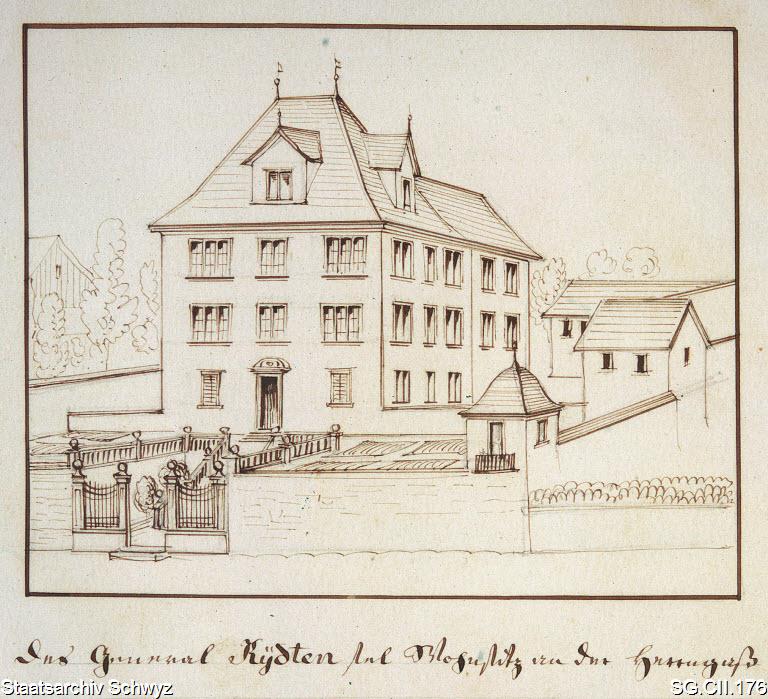 des General Rÿdten sel Wohnsitz an der Herrengaß
Staatsarchiv Schwyz
SG.CII.176